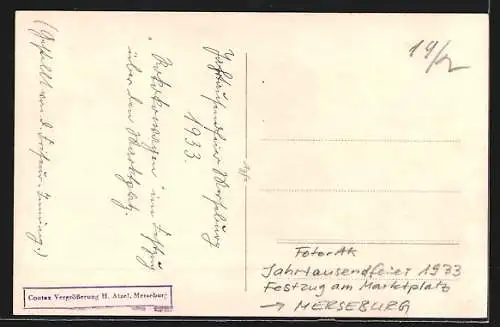 Jahrtausendfeier Merseburg
1933.
"Rokokowagen im Festzug
über den Marktplatz.
(Gestellt von d.
19/2
Foto-AK
Jahrtausendfeier 1933
Festzug am Marktplatz
→ MERSEBURG
Contax Vergrößerung H. Atzel, Merseburg